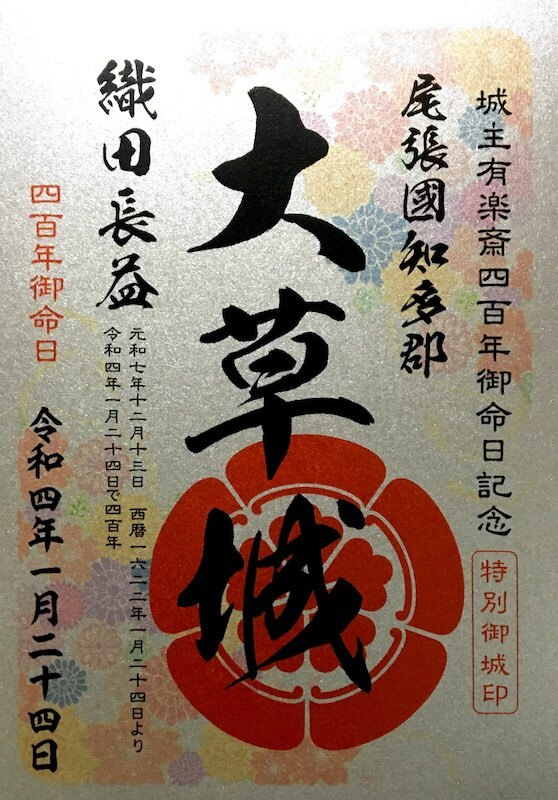 城主有楽斎四百年御命日記念
特別御城印
尾張國知多郡
大草城
織田長益
元和七年十二月十三日 西暦一六二二年一月二十四日より
令和四年一月二十四日で四百年
四百年御命日
令和四年一月二十四日